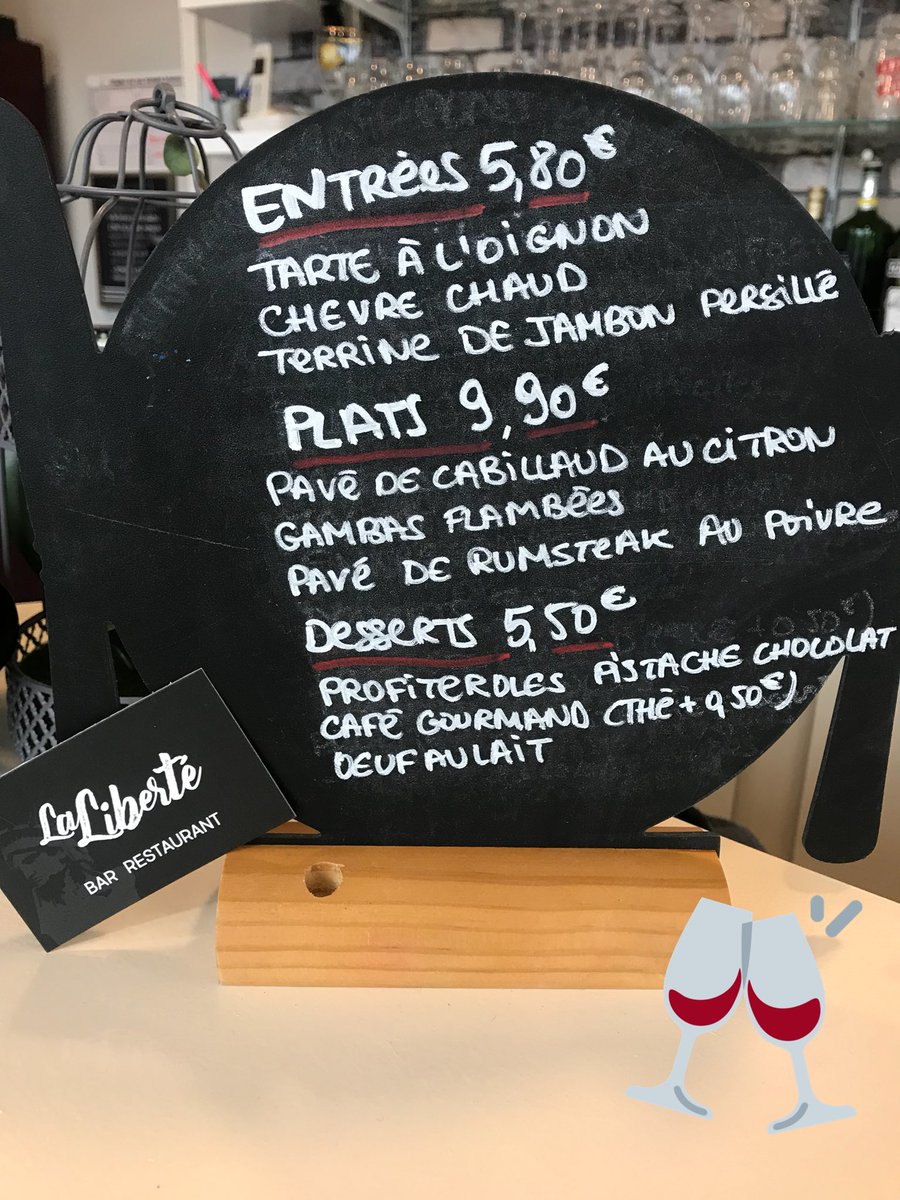 ENTRÉES 5,80€
TARTE À L'OIGNON
CHEVRE CHAUD
TERRINE DE JAMBON PERSILLÉ
PLATS 9,90€
PAVÉ DE CABILLAUD AU CITRON
GAMBAS FLAMBÉES
PAVÉ DE RUMSTEAK AU POIVRE
DESSERTS 5,50€
PROFITEROLES PISTACHE CHOCOLAT
CAFÉ GOURMAND (THÉ + 0,50€)
OEUF AU LAIT
La Liberté
BAR RESTAURANT